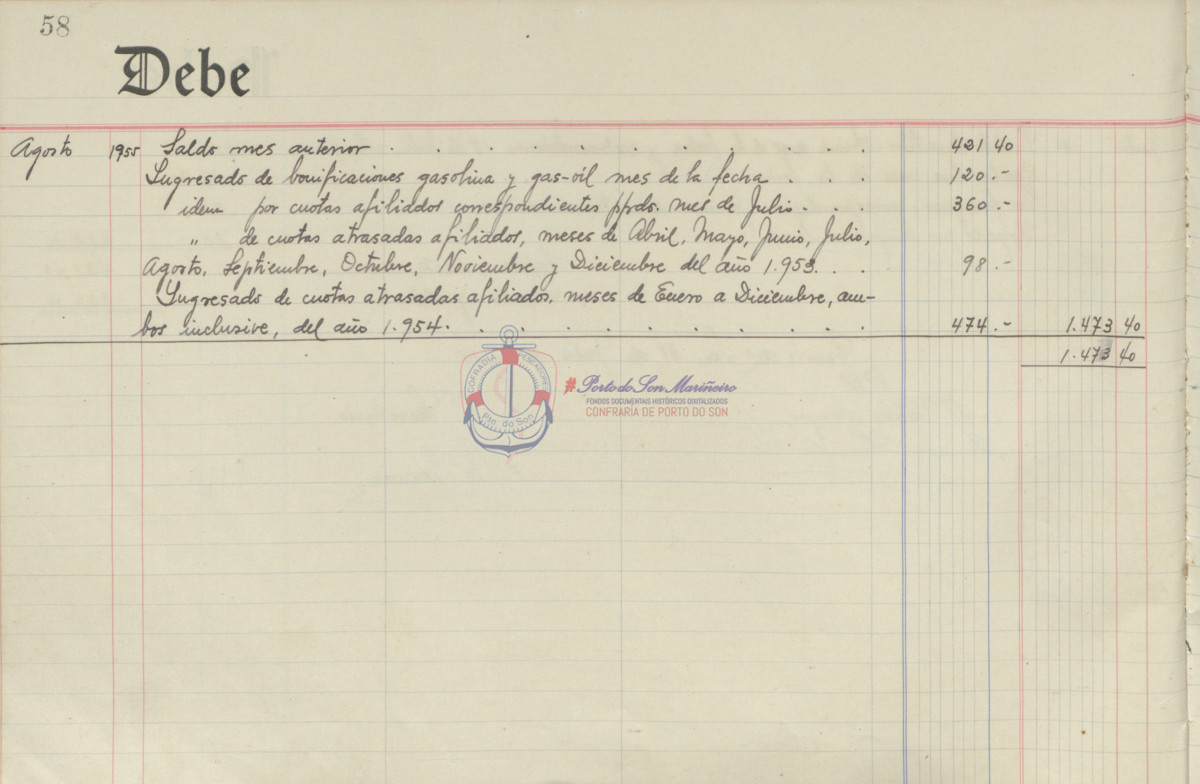 58
Debe
Agosto 1955 Saldo mes anterior . . . . . . . . . . . 421 40
Ingresado de bonificaciones gasolina y gas-oil mes de la fecha . . . 120.-
idem por cuotas afiliados correspondientes ppdo. mes de Julio . . . 360.-
" de cuotas atrasadas afiliados, meses de Abril, Mayo, Junio, Julio,
Agosto, Septiembre, Octubre, Noviembre y Diciembre del año 1.953. . . 98.-
Ingresado de cuotas atrasadas afiliados, meses de Enero a Diciembre, am-
bos inclusive, del año 1.954. . . . . . . . . . . 474.- 1.473 40
1.473 40
COFRADIA PESCADORES
Pto. do Son
# Porto do Son Mariñeiro
FONDOS DOCUMENTAIS HISTÓRICOS DIXITALIZADOS
CONFRARÍA DE PORTO DO SON